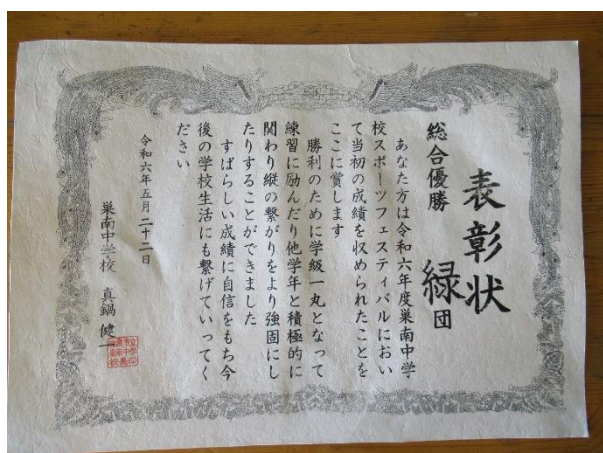 表彰状
総合優勝 緑団
あなた方は令和六年度巣南中学
校スポーツフェスティバルにおい
て当初の成績を収められたことを
ここに賞します
勝利のために学級一丸となって
練習に励んだり他学年と積極的に
関わり縦の繋がりをより強固にし
たりすることができました
すばらしい成績に自信をもち今
後の学校生活にも繋げていってく
ださい
令和六年五月二十二日
巣南中学校 真鍋健一